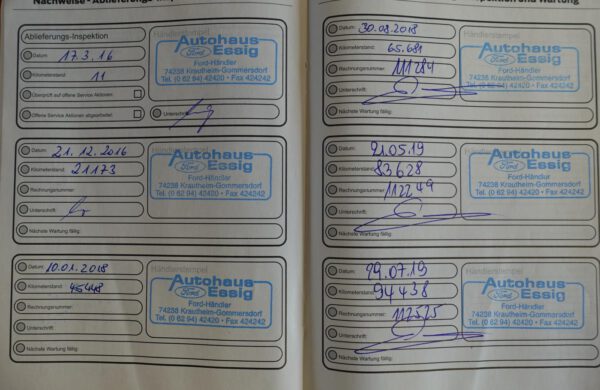 Nachweise - Ablieferungs-Inspe
Ablieferungs-Inspektion
Datum: 17.3.16
Kilometerstand: 11
Überprüft auf offene Service Aktionen:
Offene Service Aktionen abgearbeitet:
Unterschrift:
Autohaus
Ford Essig
Ford-Händler
74238 Krautheim-Gommersdorf
Tel. (0 62 94) 42420 • Fax 424242
Datum: 21.12.2016
Kilometerstand: 21173
Rechnungsnummer:
Unterschrift:
Nächste Wartung fällig:
Händlerstempel
Autohaus
Ford Essig
Ford-Händler
74238 Krautheim-Gommersdorf
Tel. (0 62 94) 42420 • Fax 424242
Datum: 10.01.2018
Kilometerstand: 45448
Rechnungsnummer:
Unterschrift:
Nächste Wartung fällig:
Händlerstempel
Autohaus
Ford Essig
Ford-Händler
74238 Krautheim-Gommersdorf
Tel. (0 62 94) 42420 • Fax 424242
und Wartung
Datum: 30.08.2018
Kilometerstand: 65.681
Rechnungsnummer: 111284
Unterschrift:
Nächste Wartung fällig:
Autohaus
Ford Essig
Ford-Händler
74238 Krautheim-Gommersdorf
Tel. (0 62 94) 42420 • Fax 424242
Datum: 21.05.19
Kilometerstand: 83628
Rechnungsnummer: 112249
Unterschrift:
Nächste Wartung fällig:
Händlerstempel
Autohaus
Ford Essig
Ford-Händler
74238 Krautheim-Gommersdorf
Tel. (0 62 94) 42420 • Fax 424242
Datum: 29.07.19
Kilometerstand: 94438
Rechnungsnummer: 112525
Unterschrift:
Nächste Wartung fällig:
Händlerstempel
Autohaus
Ford Essig
Ford-Händler
74238 Krautheim-Gommersdorf
Tel. (0 62 94) 42420 • Fax 424242